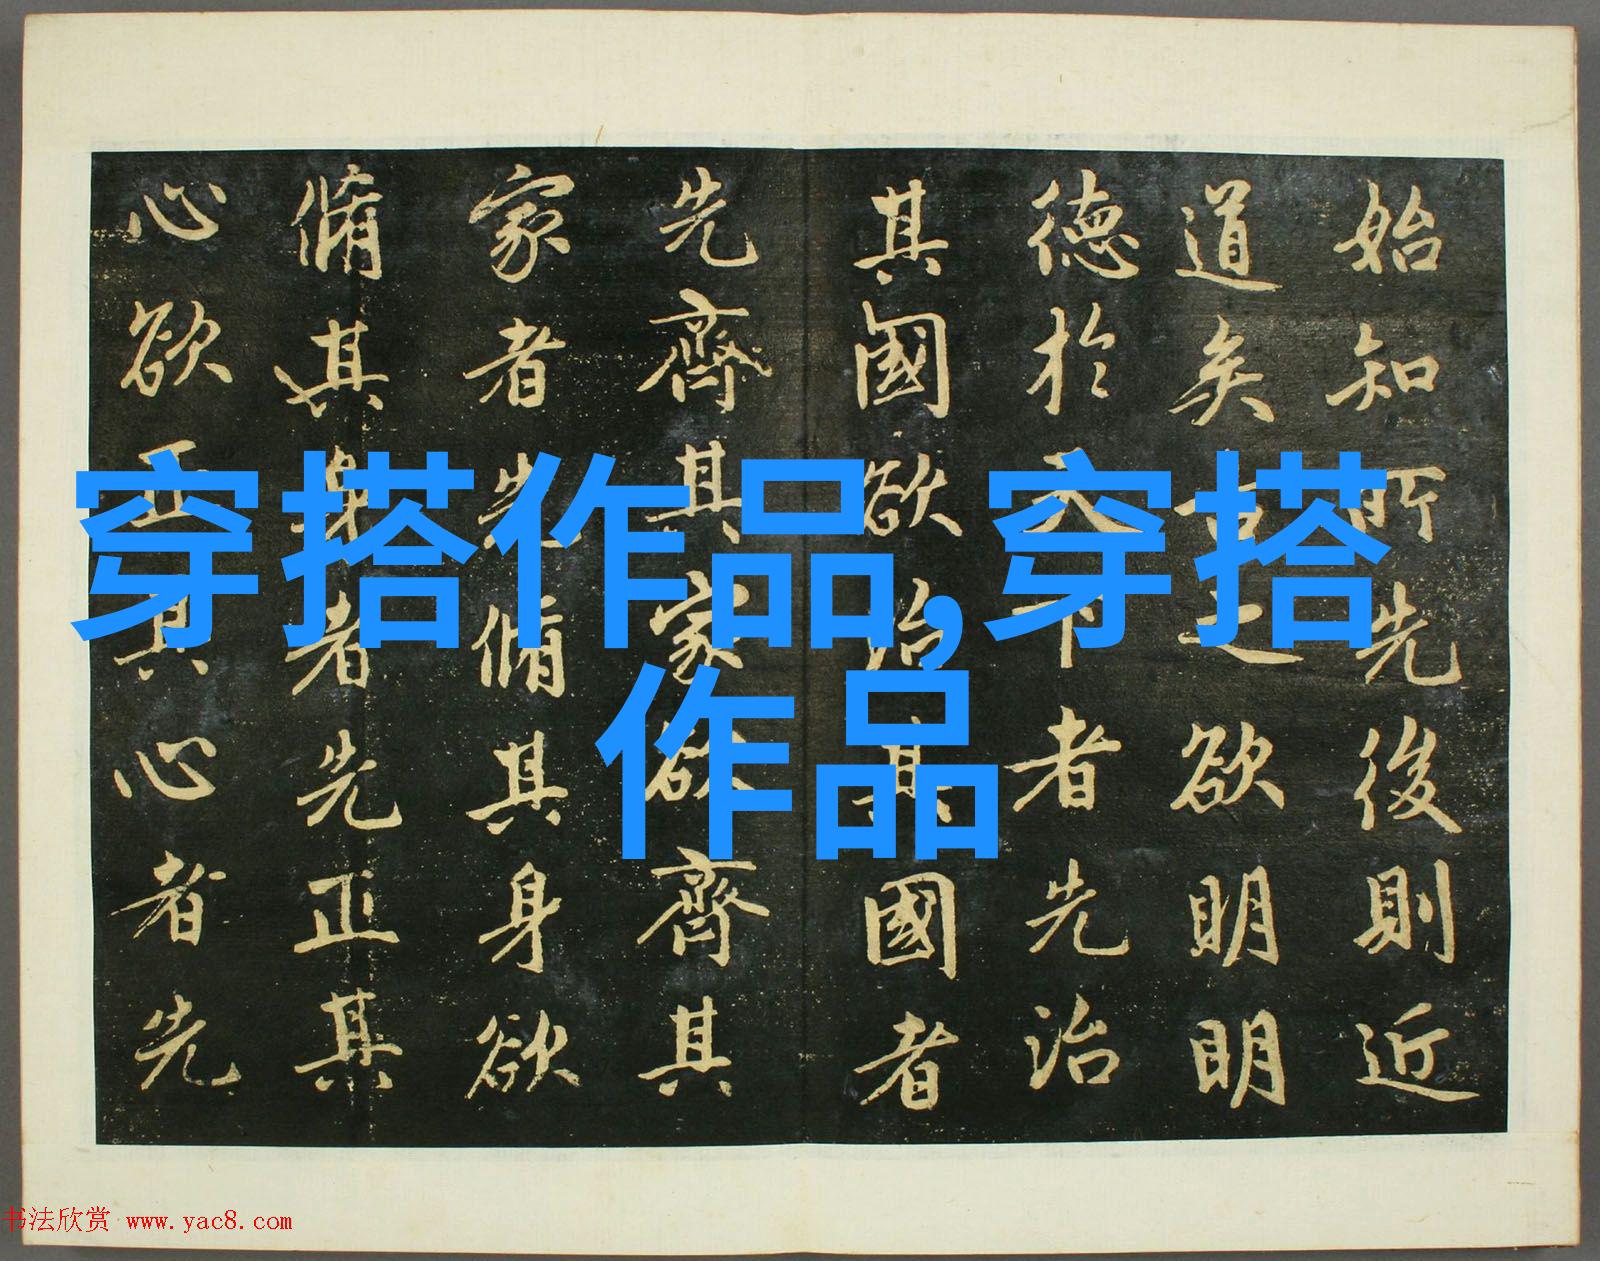 始知所先後則近
道矣古之欲明明
德於天下者先治
其國欲治其國者
先齊其家欲齊其
家者先脩其身欲
脩其身者先正其
心欲正其心者先
穿搭作品,穿搭
作品
书法欣赏 www.yac8.com